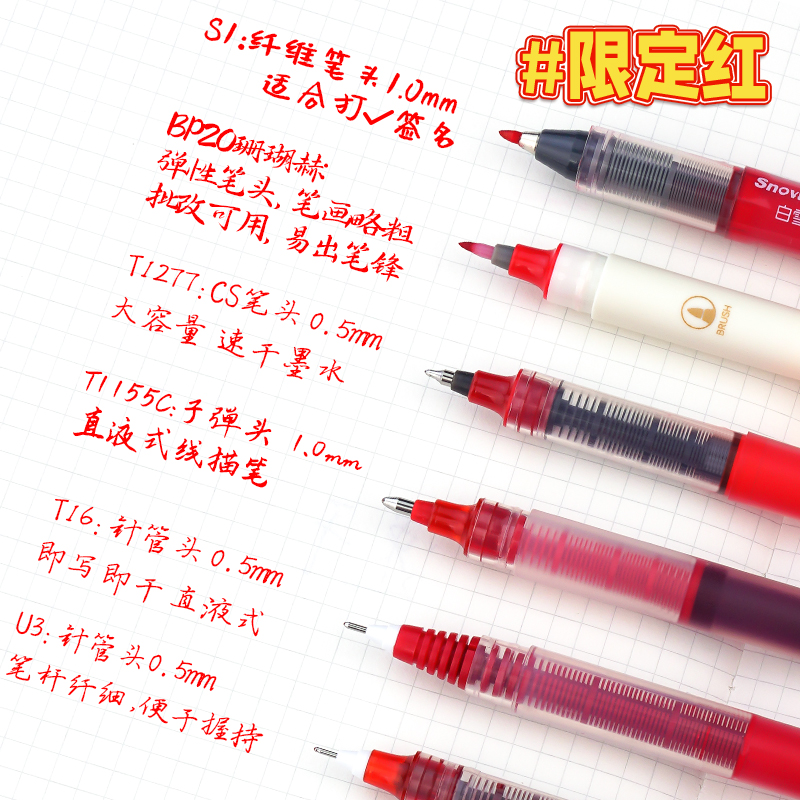 #限定红
S1:纤维笔头1.0mm
适合打✓签名
BP20珊瑚赫
弹性笔头,笔画略粗
批改可用,易出笔锋
T1277:CS笔头0.5mm
大容量 速干墨水
T1155C:子弹头 1.0mm
直液式线描笔
T16:针管头0.5mm
即写即干直液式
U3:针管头0.5mm
笔杆纤细,便于握持
Snow
白雪
BRUSH